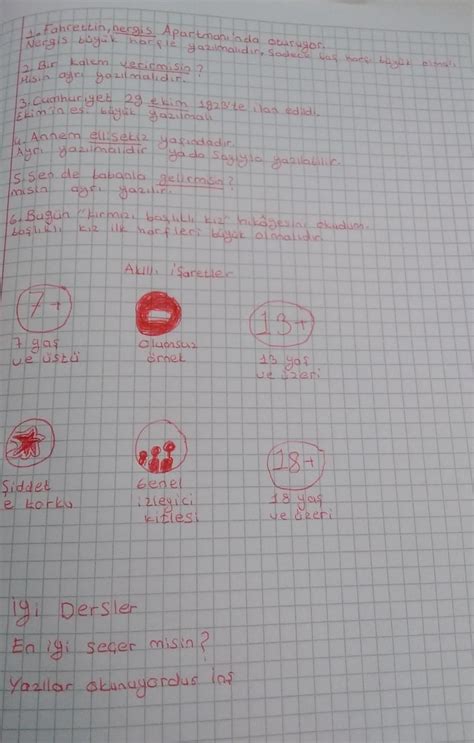 1. Fahrettin, nergis Apartmanı'nda oturuyor.
Nergis büyük harfle yazılmalıdır. Sadece baş harfi büyük olmalı
2. Bir kalem verirmisin?
misin ayrı yazılmalıdır.
3. Cumhuriyet 29 ekim 1923'te ilan edildi.
Ekim'in e si büyük yazılmalı
4. Annem ellisekiz yaşındadır.
Ayrı yazılmalıdır yada sayıyla yazılabilir.
5. Sen de babanla gelirmisin?
misin ayrı yazılır.
6. Bugün "kırmızı başlıklı kız" hikâyesini okudum.
başlıklı kız ilk harfleri büyük olmalıdır.
Akıllı işaretler
7+
13+
7 yaş
ve üstü
olumsuz
örnek
13 yaş
ve üzeri
18+
Şiddet
e korku
Genel
izleyici
kitlesi
18 yaş
ve üzeri
iyi Dersler
En iyi seçer misin?
Yazılar okunuyordus inş